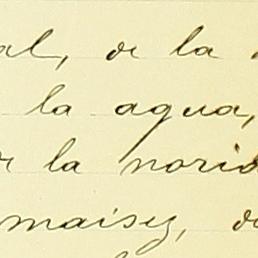 al, de la
la agua,
de la norid
maisey, de